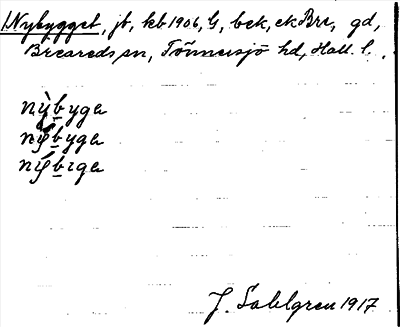 Nybygget, jb, kb 1906, G, bek, ek Bre, gd,
Breareds sn, Tönnersjö hd, Hall. l.
nỳbyga
nýbyga
nýbıga
J. Sahlgren 1917